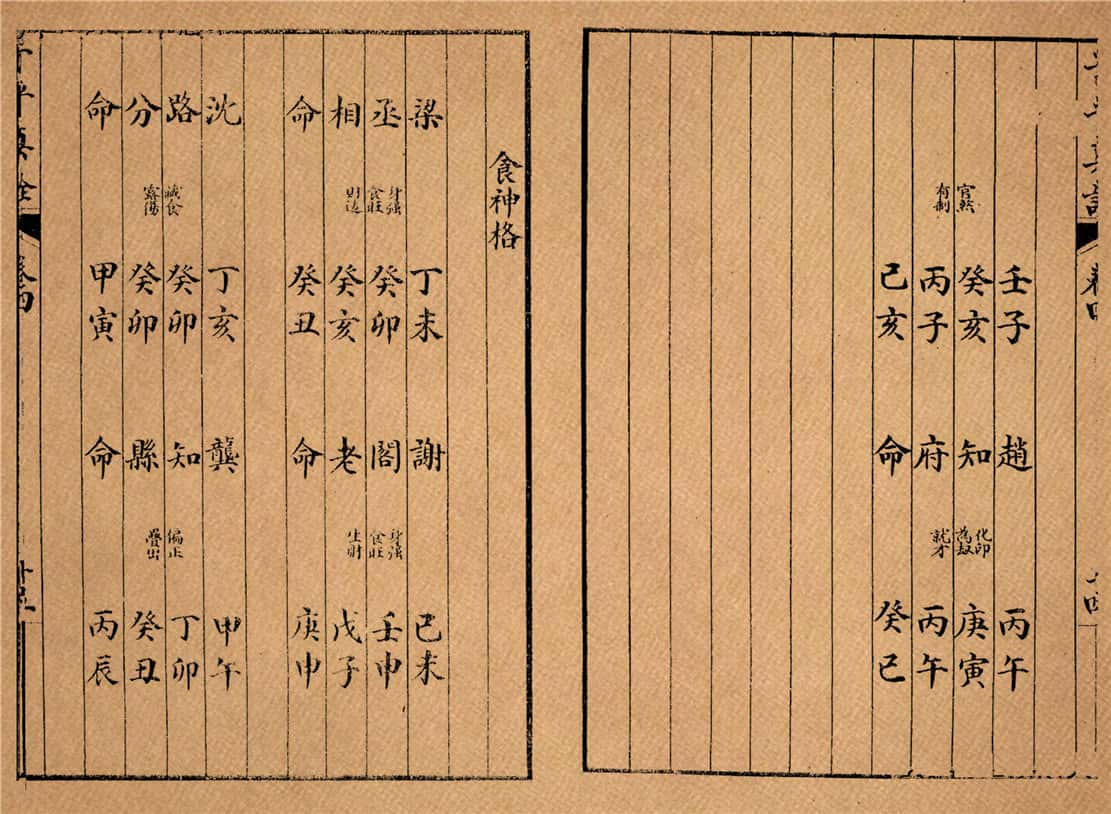 官煞
有制
壬子
癸亥
丙子
己亥
趙知府命
化印
為劫
就才
丙午
庚寅
丙午
癸巳
食神格
梁丞相命
身強
食旺
財透
丁未
癸卯
癸亥
癸丑
謝閣老命
身強
食旺
生財
己未
壬申
戊子
庚申
沈路分命
藏食
露傷
丁亥
癸卯
癸卯
甲寅
龔知縣命
偏正
疊出
甲午
丁卯
癸丑
丙辰
子平真詮 卷四